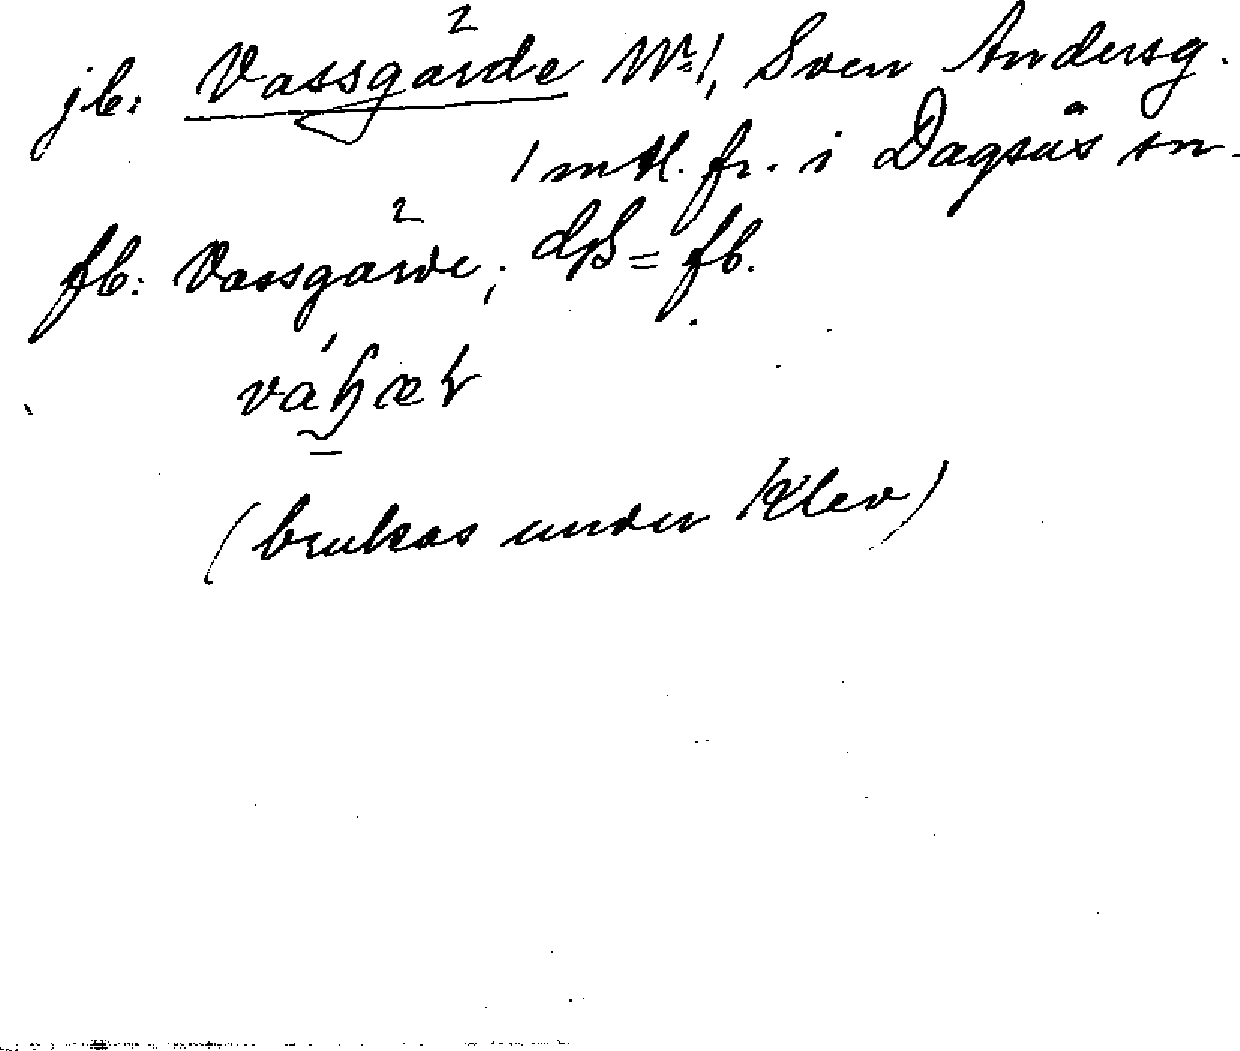 jb: Vassgärde N:r 1, Sven Andersg.
1 mtl. fr. i Dagsås sn.
fb: Vassgärde; = fb.
(brukas under Klev)